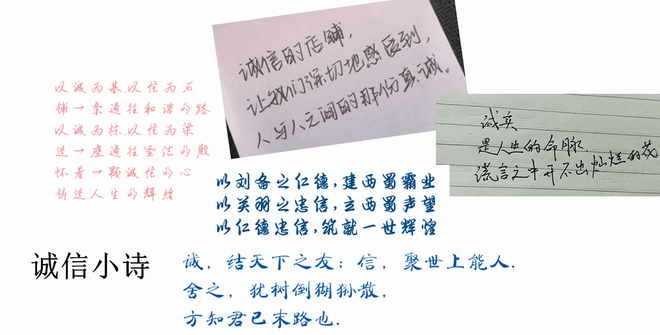 诚信的店铺,
让我们深切地感受到,
人与人之间的那份真诚。
以诚为基以信为石
铺一条通往和谐的路
以诚为栋以信为梁
造一座通往圣洁的殿
怀着一颗诚信的心
铸造人生的辉煌
诚实
是人生的命脉.
谎言之中开不出灿烂的花
以刘备之仁德,建西蜀霸业
以关羽之忠信,立西蜀声望
以仁德忠信,筑就一世辉煌
诚信小诗
诚, 结天下之友; 信, 聚世上能人.
舍之, 犹树倒猢狲散,
方知君已末路也.